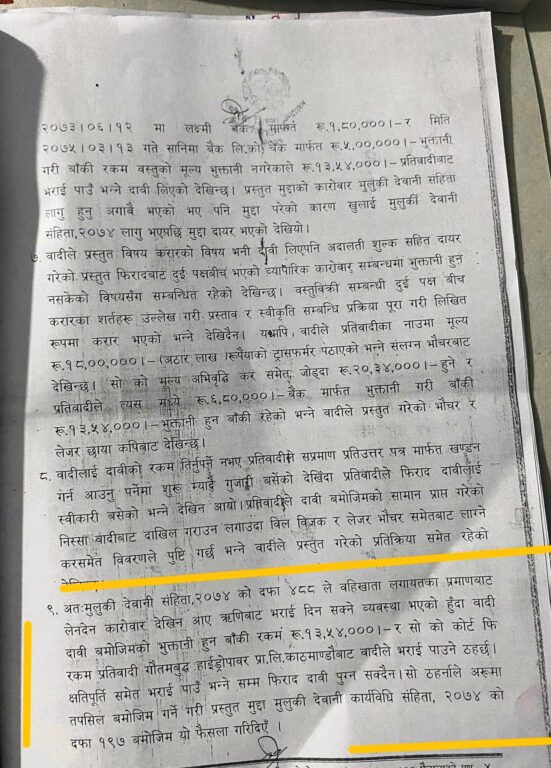 २०७३।०६।१२ मा लक्ष्मी बैंक मार्फत रू.१,८०,०००।-र मिति
२०७५।०३।१३ गते सानिमा बैंक लि.को चेक मार्फत रू.५,००,०००।-भुक्तानी
गरी बाँकी रकम वस्तुको मूल्य भुक्तानी नगरेकाले रू.१३,५४,०००।-प्रतिवादीबाट
भराई पाउँ भन्ने दावी लिएको देखिन्छ। प्रस्तुत मुद्दाको कारोवार मुलुकी देवानी संहिता
लागु हुनु अगाबै भएको भए पनि मुद्दा परेको कारण खुलाई मुलुकी देवानी
संहिता,२०७४ लागु भएपछि मुद्दा दायर भएको देखियो।
७. वादीले प्रस्तुत विषय करारको विषय भनी दावी लिएपनि अदालती शुल्क सहित दायर
गरेको प्रस्तुत फिरादबाट दुई पक्षबीच भएको व्यापारिक कारोवार सम्बन्धमा भुक्तानी हुन
नसकेको विषयसँग सम्बन्धित रहेको देखिन्छ। वस्तुविक्री सम्बन्धी दुई पक्ष बीच
करारका शर्तहरू उल्लेख गरी प्रस्ताव र स्वीकृति सम्बन्धि प्रक्रिया पूरा गरी लिखित
रूपमा करार भएको भन्ने देखिदैन। यधापि, वादीले प्रतिवादीका नाउमा मूल्य
रू.१८,००,०००।-(अठार लाख )रूपैयाको ट्रासफर्मर पठाएको भन्ने संलग्न भौचरबाट
देखिन्छ। सो को मूल्य अभिवृद्वि कर समेत जोड्दा रू.२०,३४,०००।-हुने र
प्रतिवादीले त्यस मध्ये रू.६,८०,०००।-बैंक मार्फत भुक्तानी गरी बाँकी
रू.१३,५४,०००।-भुक्तानी हुन बाँकी रहेको भन्ने वादीले प्रस्तुत गरेको भौचर र
लेजर छाया कपिबाट देखिन्छ।
८. वादीलाई दावीको रकम तिर्नुपर्ने नभए प्रतिवादीले सप्रमाण प्रतिउत्तर पत्र मार्फत खण्डन
गर्न आउनु पर्नेमा शुरू म्यादै गुजारी बसेको देखिंदा प्रतिवादीले फिराद दावीलाई
स्वीकारी बसेको भन्ने देखिन आयो। प्रतिवादीले दावी बमोजिमको सामान प्राप्त गरेको
निस्सा वादीबाट दाखिल गराउन लगाउदा विल विजक र लेजर भौचर समेतबाट लाग्ने
करसमेत विवरणले पुष्टि गर्छ भन्ने वादीले प्रस्तुत गरेको प्रतिक्रिया समेत रहेको
९. अतःमुलुकी देवानी संहिता,२०७४ को दफा ४८८ ले वहिखाता लगायतका प्रमाणबाट
लेनदेन कारोवार देखिन आए ऋणिबाट भराई दिन सक्ने व्यवस्था भएको हुँदा वादी
दावी बमोजिमको भुक्तानी हुन बाँकी रकम रू.१३,५४,०००।-र सो को कोर्ट फि
रकम प्रतिवादी गौतमबुद्ध हाईड्रोपावर प्रा.लि.काठमाण्डौबाट वादीले भराई पाउने ठहर्छ।
क्षतिपूर्ति समेत भराई पाउँ भन्ने सम्म फिराद दावी पुग्न सक्दैन।सो ठहर्नाले अरूमा
तपसिल बमोजिम गर्ने गरी प्रस्तुत मुद्दा मुलुकी देवानी कार्यविधि संहिता, २०७४ को
दफा १९७ बमोजिम यो फैसला गरिदिएँ ।